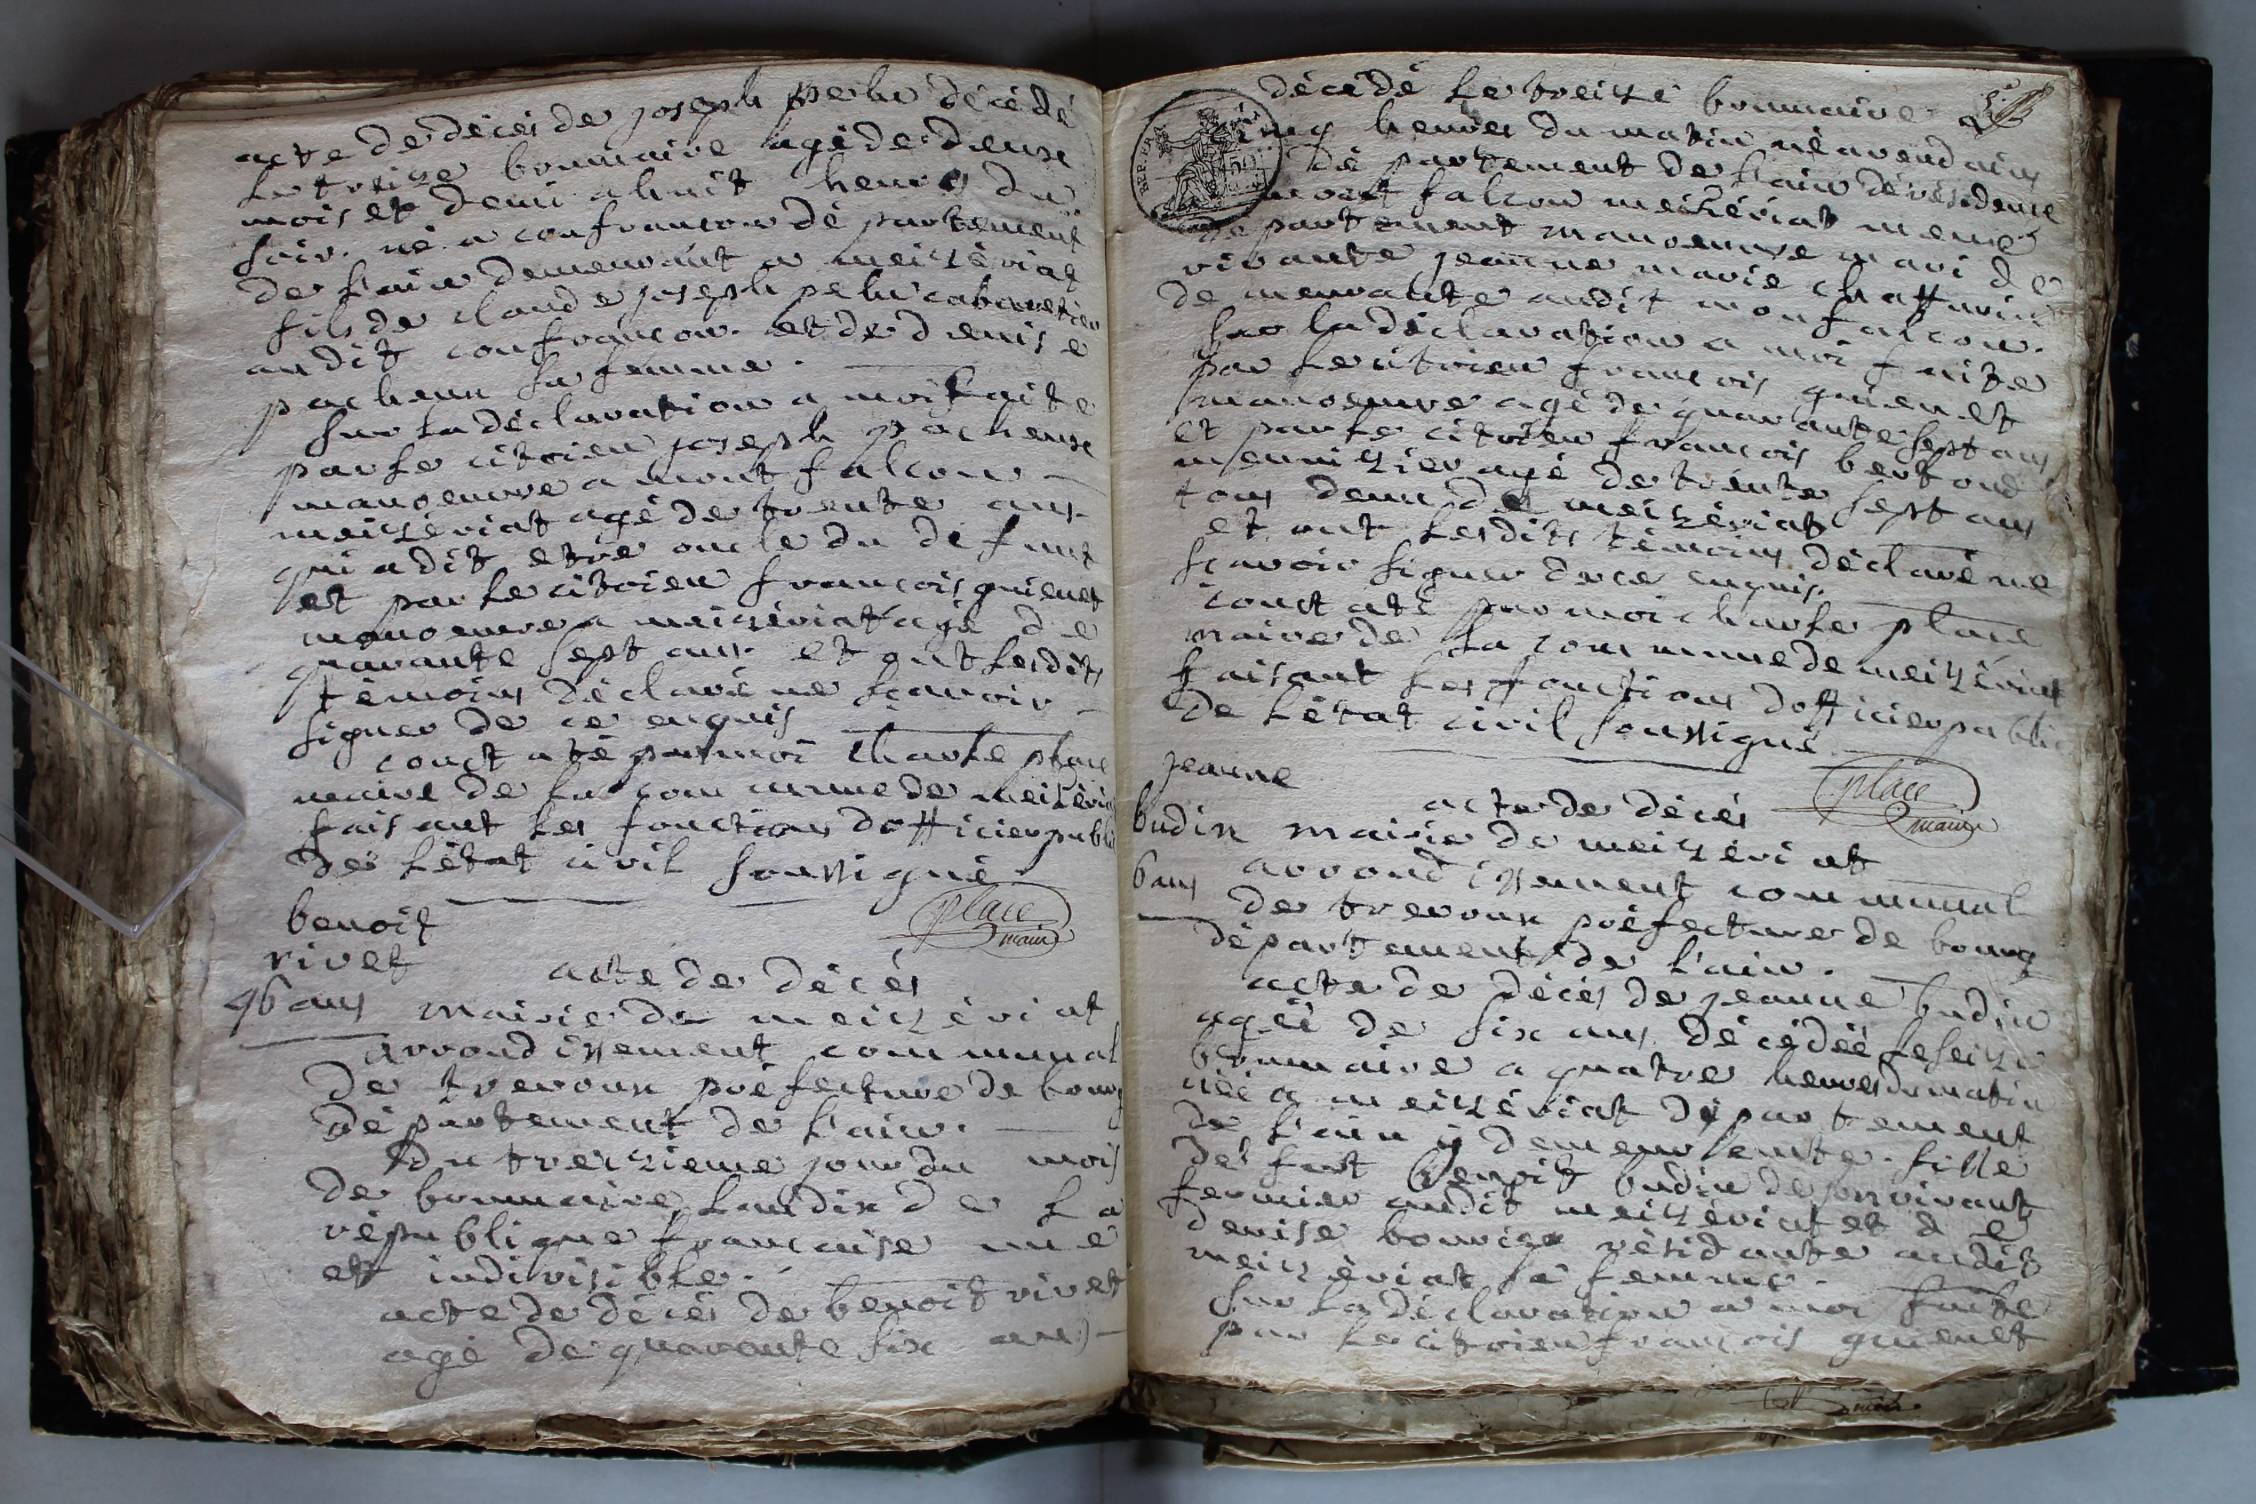 acte de décés de joseph pelu décédé
le treize brumaire agé de deux
mois et demi a huit heures du
soir. né a confrancon département
de l'ain demeurant a meizériat
fils de claude joseph pelu cabaretier
audit confrancon. et de denise
pacheux sa femme.
sur la déclaration a moi faite
par le citoien joseph pacheux
manoeuvre a montfalcon
meizériat agé de trente ans.
qui a dit etre oncle du defunt
et par le citoien francois guienet
manoeuvre a meizériat agé de
quarante sept ans. et ont lesdits
témoins déclaré ne scavoir
signer de ce enquis
constaté par moi charle place
maire de la commune de meizéria
faisant les fonctions dofficier publi
de l'état civil soussigné
place
maire
benoit
rivet
46 ans
acte de décés
mairie de meizériat
arrondissement communal
de trevoux préfecture de bourg
département de l'ain.
du treizieme jour du mois
de brumaire l'an dix de la
république francaise une
et indivisible.
acte de décés de benoit rivet
agé de quarante six ans
décédé le treize brumaire
cinq heures du matin né a vendains
département de l'ain de résidence
montfalcon meizériat meme
département manoeuvre mari de
vivante jeanne marie chaffurin
demeurante audit monfalcon.
sur la déclaration a moi faite
par le citoien francois guienet
manoeuvre agé de quarante sept ans
et par le citoien francois berthoud
menuizier agé de trente sept ans
tous deux de meizériat
et ont lesdits témoins déclaré ne
scavoir signer de ce enquis.
constaté par moi charle place
maire de la commune de meizériat
faisant les fonctions dofficier public
de l'état civil soussigné
place
maire
jeanne
budin
6 ans
acte de décés
mairie de meizériat
arrondissement communal
de trevoux préfecture de bourg
département de l'ain.
acte de décés de jeanne budin
agéé de six ans. décédéé le seize
brumaire a quatre heures du matin
néé a meizériat département
de l'ain y demeurante. fille
de feut benoit budin de son vivant
fermier audit meizériat et de
denise résidante audit
meizériat sa femme.
sur la déclaration a moi faite
par le citoien francois guienet
maire